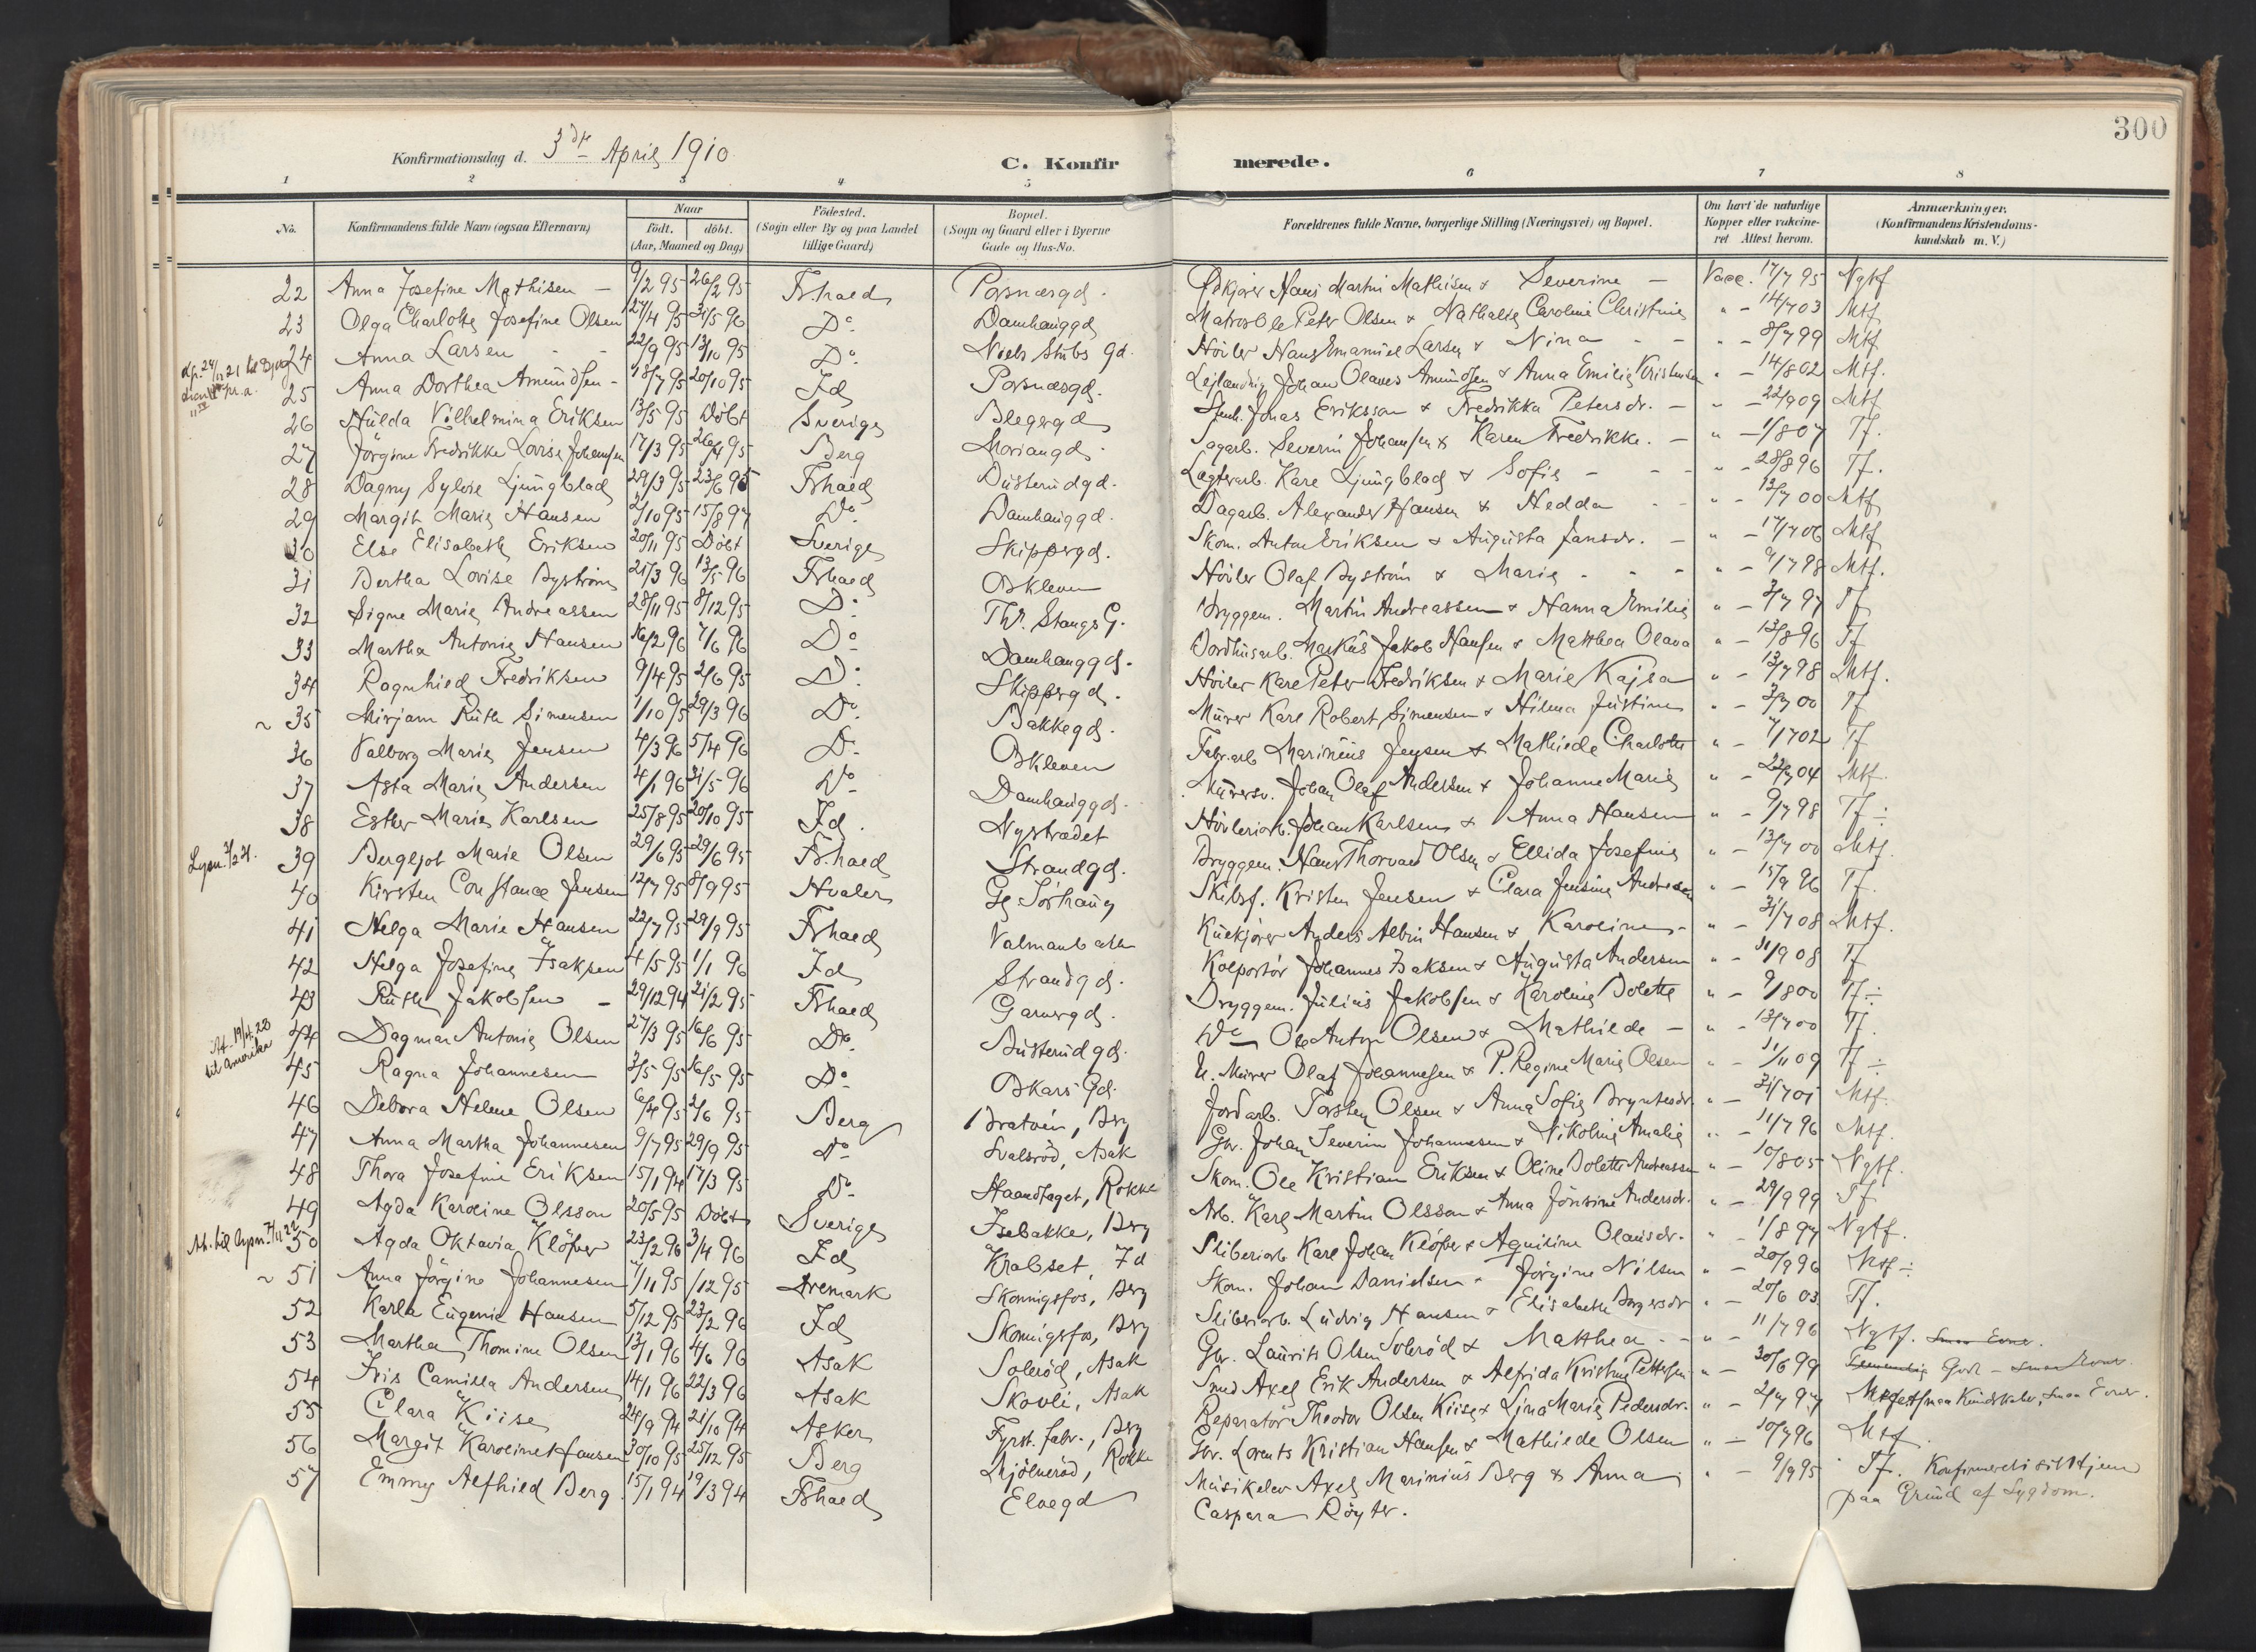 300
Konfirmationsdag d. 3die April 1910
C. Konfirmerede.
1 2 3 4 5 6 7 8
No. Konfirmandens fulde Navn (ogsaa Efternavn) Naar født. døbt. (Aar, Maaned og Dag) Fødested. (Sogn eller By og paa Landet tillige Gaard) Bopæl. (Sogn og Gaard eller i Byerne Gade og Hus-No. Forældrenes fulde Navne, borgerlige Stilling (Næringsvei) og Bopæl. Om havt de naturlige Kopper eller vakcineret Attest herom. Anmærkninger. (Konfirmandens Kristendomskundskab m. V.)
22 Anna Josefine Mathisen – 9/2 95 26/2 95 Frhald Porsnæsgd. Hans Martin Mathisen & Severine – Vacc. 17/7 95 Ngtf
23 Olga Charlotte Josefine Olsen 27/4 95 31/5 96 Do Damhauggd Matros Ole Peter Olsen & Nathalie Caroline Christine " – 14/7 03 Mtf
24 Anna Larsen 22/9 95 13/10 95 Do Niels Stubs gd. Høvler Hans Emanuel Larsen & Nina " – 8/7 99 Mtf
25 Anna Dorthea Amundsen – 18/7 95 20/10 95 Id Porsnæsgd. Johan Olaves Amundsen & Anna Emilie Kristensen " – 14/8 02 Mtf.
26 Hulda Vilhelmina Eriksen 13/5 95 Døbt Sverige Blegegd Jonas Eriksson & Fredrikka Petersdr. – " – 22/9 09 Mtf
27 Jørgine Fredrikke Lovise Johansen 17/3 95 26/4 95 Berg Moriangd. Dagarb. Severin Johansen & Karen Fredrikke. – " – 1/8 07 Tf.
28 Dagny Sylvie Ljungblad 29/3 95 23/6 95 Frhald Busterudgd. Lagterarb. Karl Ljungblad & Sofie – " – 28/8 96 Tf.
29 Margit Marie Hansen 2/10 95 15/8 97 Do Damhauggd. Dagarb. Alexander Hansen & Hedda " – 13/7 00 Mtf
30 Else Elisabeth Eriksen 20/11 95 Døbt Sverige Skippergd. Skom. Anton Eriksen & Augusta Jansdr. – " – 17/7 06 Mtf
31 Bertha Lovise Byström 21/3 96 13/5 96 Frhald Bkleven Høvler Olaf Byström & Marie – " – 9/7 98 Mtf.
32 Signe Marie Andreassen 28/11 95 8/12 95 Do Th. Stangs G. Bryggem. Martin Andreassen & Hanna Emilie " – 3/7 97 Tf
33 Martha Antonie Hansen 16/2 96 7/6 96 Do Damhauggd. Markus Jakob Hansen & Matthea Olava " – 13/8 96 Tf
34 Ragnhild Fredriksen 9/4 95 2/6 95 Do Skippergd. Høvler Karl Peter Fredriksen & Marie Kajsa " – 13/7 98 Mtf.
35 Mirjam Ruth Simensen 1/10 95 29/3 96 Do Bakkegd. Murer Karl Robert Simensen & Hilma Justine " – 3/7 00 Tf
36 Valborg Marie Jensen 4/3 96 5/4 96 Do Bkleven Fabr.arb Marinius Jensen & Mathilde Charlotte " – 1/7 02 Tf
37 Asta Marie Andersen 4/1 96 31/5 96 Do Damhauggd. Murersv. Johan Olaf Andersen & Johanne Marie " – 22/7 04 Mtf.
38 Esther Marie Karlsen 25/8 95 20/10 95 Id. Nystrædet Høvleriarb. Johan Karlsen & Anna Hansen " – 9/7 98 Tf ÷
Lysn. 3/2 31. 39 Bergljot Marie Olsen 29/6 95 29/6 95 Frhald Strandgd. Bryggem. Hans Thorvald Olsen & Ellida Josefine " – 13/7 00 Mtf.
40 Kirsten Constance Jensen 12/7 95 8/9 95 Hvaler Gg Sørhaug Skibsf. Kristen Jensen & Clara Jensine Andresen " – 15/9 96 Tf.
41 Helga Marie Hansen 22/7 95 29/9 95 Frhald Anders Albin Hansen & Karoline – " – 31/7 08 Mtf.
42 Helga Josefine Isaksen 4/5 95 1/1 96 Id Strandgd. Kolportør Johannes Isaksen & Augusta Andersen " – 11/9 08 Tf
43 Ruth Jakobsen – 29/12 94 21/2 95 Frhald Garvergd. Bryggem. Julius Jakobsen & Karoline Bolette " – 9/8 00 Tf ÷
44 Dagmar Antonie Olsen 27/3 95 16/6 95 Do Busterudgd. Do Ole Anton Olsen & Mathilde – " – 13/7 00 Tf.
At. 19/4 23 til Amerika 45 Ragna Johannesen 3/5 95 16/5 95 Do Bkars Gd. U. Murer Olaf Johannesen & P. Regine Marie Olsen " – 1/11 09 Tf ÷
46 Debora Helene Olsen 6/4 95 2/6 95 Berg Bratvein, Brg Jordarb. Torsten Olsen & Anna Sofie Bryntesdr. " – 31/7 01 Mtf.
47 Anna Martha Johannesen 9/7 95 29/9 95 Do Svalerød, Asak Gbr. Johan Severin Johannesen & Nikoline Amalie " – 11/7 96 Mtf.
48 Thora Josefine Eriksen 15/1 94 17/3 95 Do Haandtaget, Rokke Skom. Ole Kristian Eriksen & Oline Bolette Andreassen " – 10/8 05 Ngtf.
49 Agda Karoline Olsson 20/5 95 Døbt Sverige Isebakke, Brg Arb. Karl Martin Olsson & Anna Andersdr. " – 29/9 99 Tf
At. til Lysn. 7/11 22 50 Agda Oktavia Kløfver 23/2 96 3/4 96 Id Krabset, Id Sliberiarb Karl Johan Kløfver & Aquiline Olausdr. " – 1/8 97 Ngtf.
51 Anna Jørgine Johannesen 7/11 95 /12 95 Øremark Skonnigsfos, Brg Skom. Johan Danielsen & Jørgine Nilsen " – 20/9 96 Mtf ÷
52 Karla Eugenie Hansen 5/12 95 23/2 96 Id Skonnigsfos, Brg Sliberiarb. Ludvig Hansen & Elisabeth " – 20/6 03 Tf.
53 Martha Thomine Olsen 13/1 96 4/6 96 Asak Solerød, Asak Gbr. Laurits Olsen Solerød & Matthea – " – 11/7 96 Ngtf. Smaa Evner.
54 Iris Camilla Andersen 14/1 96 22/3 96 Asak Skovli, Asak Smed Axel Erik Andersen & Alfrida Kristine Pettersen " – 30/6 99 Godt – smaa Evner.
55 Clara Kiise 24/9 94 21/10 94 Asker Fyrst. fabr., Brg Reparatør Theodor Olsen Kiise & Lina Marie Pedersdr. " – 2/7 97 smaa Kundskaber, smaa Evner.
56 Margit Karoline Hansen 30/10 95 25/12 95 Berg Mjølnerød, Rokke Gbr. Lorents Kristian Hansen & Mathilde Olsen " – 10/7 96 Mtf.
57 Emmy Alfhild Berg 15/1 94 19/3 94 Frhald Elvegd Musikelev Axel Marinius Berg & Anna " – 9/9 95 Tf. Konfirmeret i sit Hjem
Caspara Røyter. paa Grund af Sygdom.